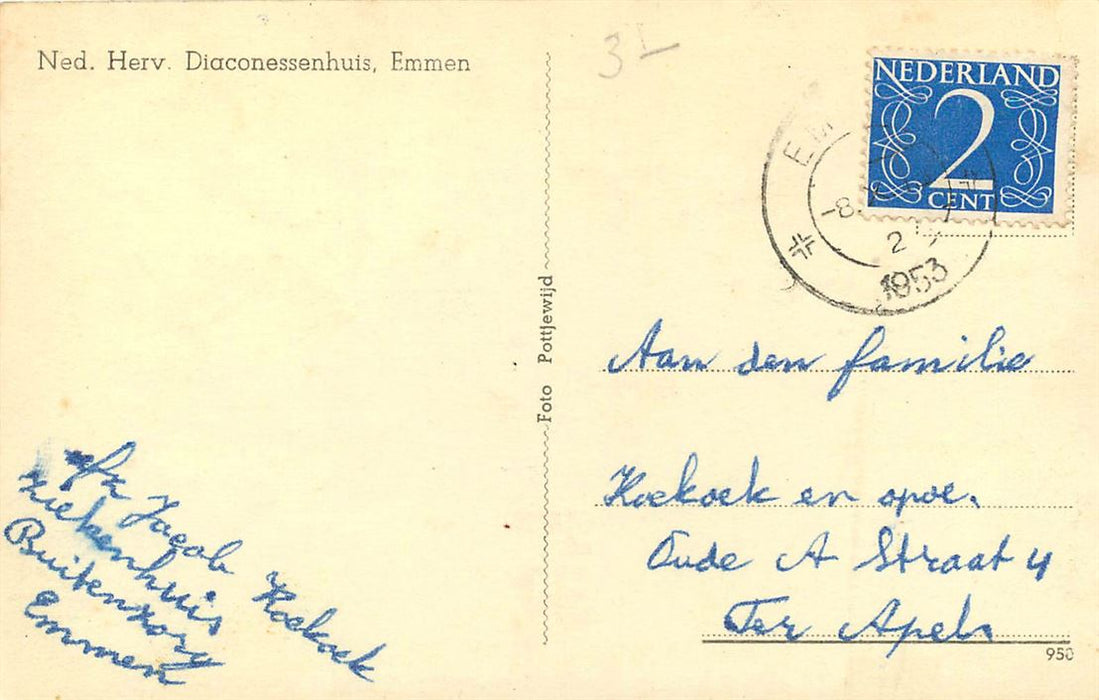 Ned. Herv. Diaconessenhuis, Emmen
3
NEDERLAND
2
CENT
EM
-8.
2
1953
Foto Pottjewijd
Aan den familie
Koekoek en opoe.
Oude A Straat 4
Ter Apel.
950
afz Jacob Koekoek
Ziekenhuis
Buitenzorg
Emmen